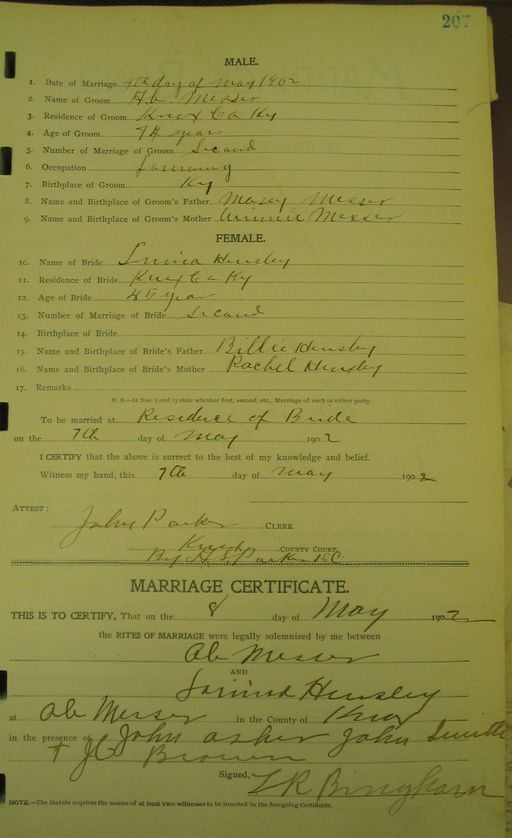 207
MALE.
1. Date of Marriage 7th day of May 1902
2. Name of Groom Ab Messer
3. Residence of Groom Knox Co Ky
4. Age of Groom 74 years
5. Number of Marriage of Groom Second
6. Occupation farming
7. Birthplace of Groom Ky
8. Name and Birthplace of Groom's Father Messer
9. Name and Birthplace of Groom's Mother Winnie Messer
FEMALE.
10. Name of Bride Hensley
11. Residence of Bride Knox Co Ky
12. Age of Bride 45 year
13. Number of Marriage of Bride Second
14. Birthplace of Bride
15. Name and Birthplace of Bride's Father Billie Hensley
16. Name and Birthplace of Bride's Mother Rachel Hensley
17. Remarks
N. B.—At Nos. 5 and 13 state whether first, second, etc., Marriage of each or either party.
To be married at Residence of Bride
on the 7th day of May 1902
I CERTIFY that the above is correct to the best of my knowledge and belief.
Witness my hand, this 7th day of May 1902
ATTEST:
John Parker CLERK
Knox COUNTY COURT,
By H. Parker DC
MARRIAGE CERTIFICATE.
THIS IS TO CERTIFY, That on the 8 day of May 1902
the RITES OF MARRIAGE were legally solemnized by me between
Ab Messer
AND
Hensley
at Ab Messer in the County of Knox
in the presence of John Asher John Smith
+ Brown
Signed, Bingham
NOTE.—The Statute requires the names of at least two witnesses to be inserted in the foregoing Certificate.